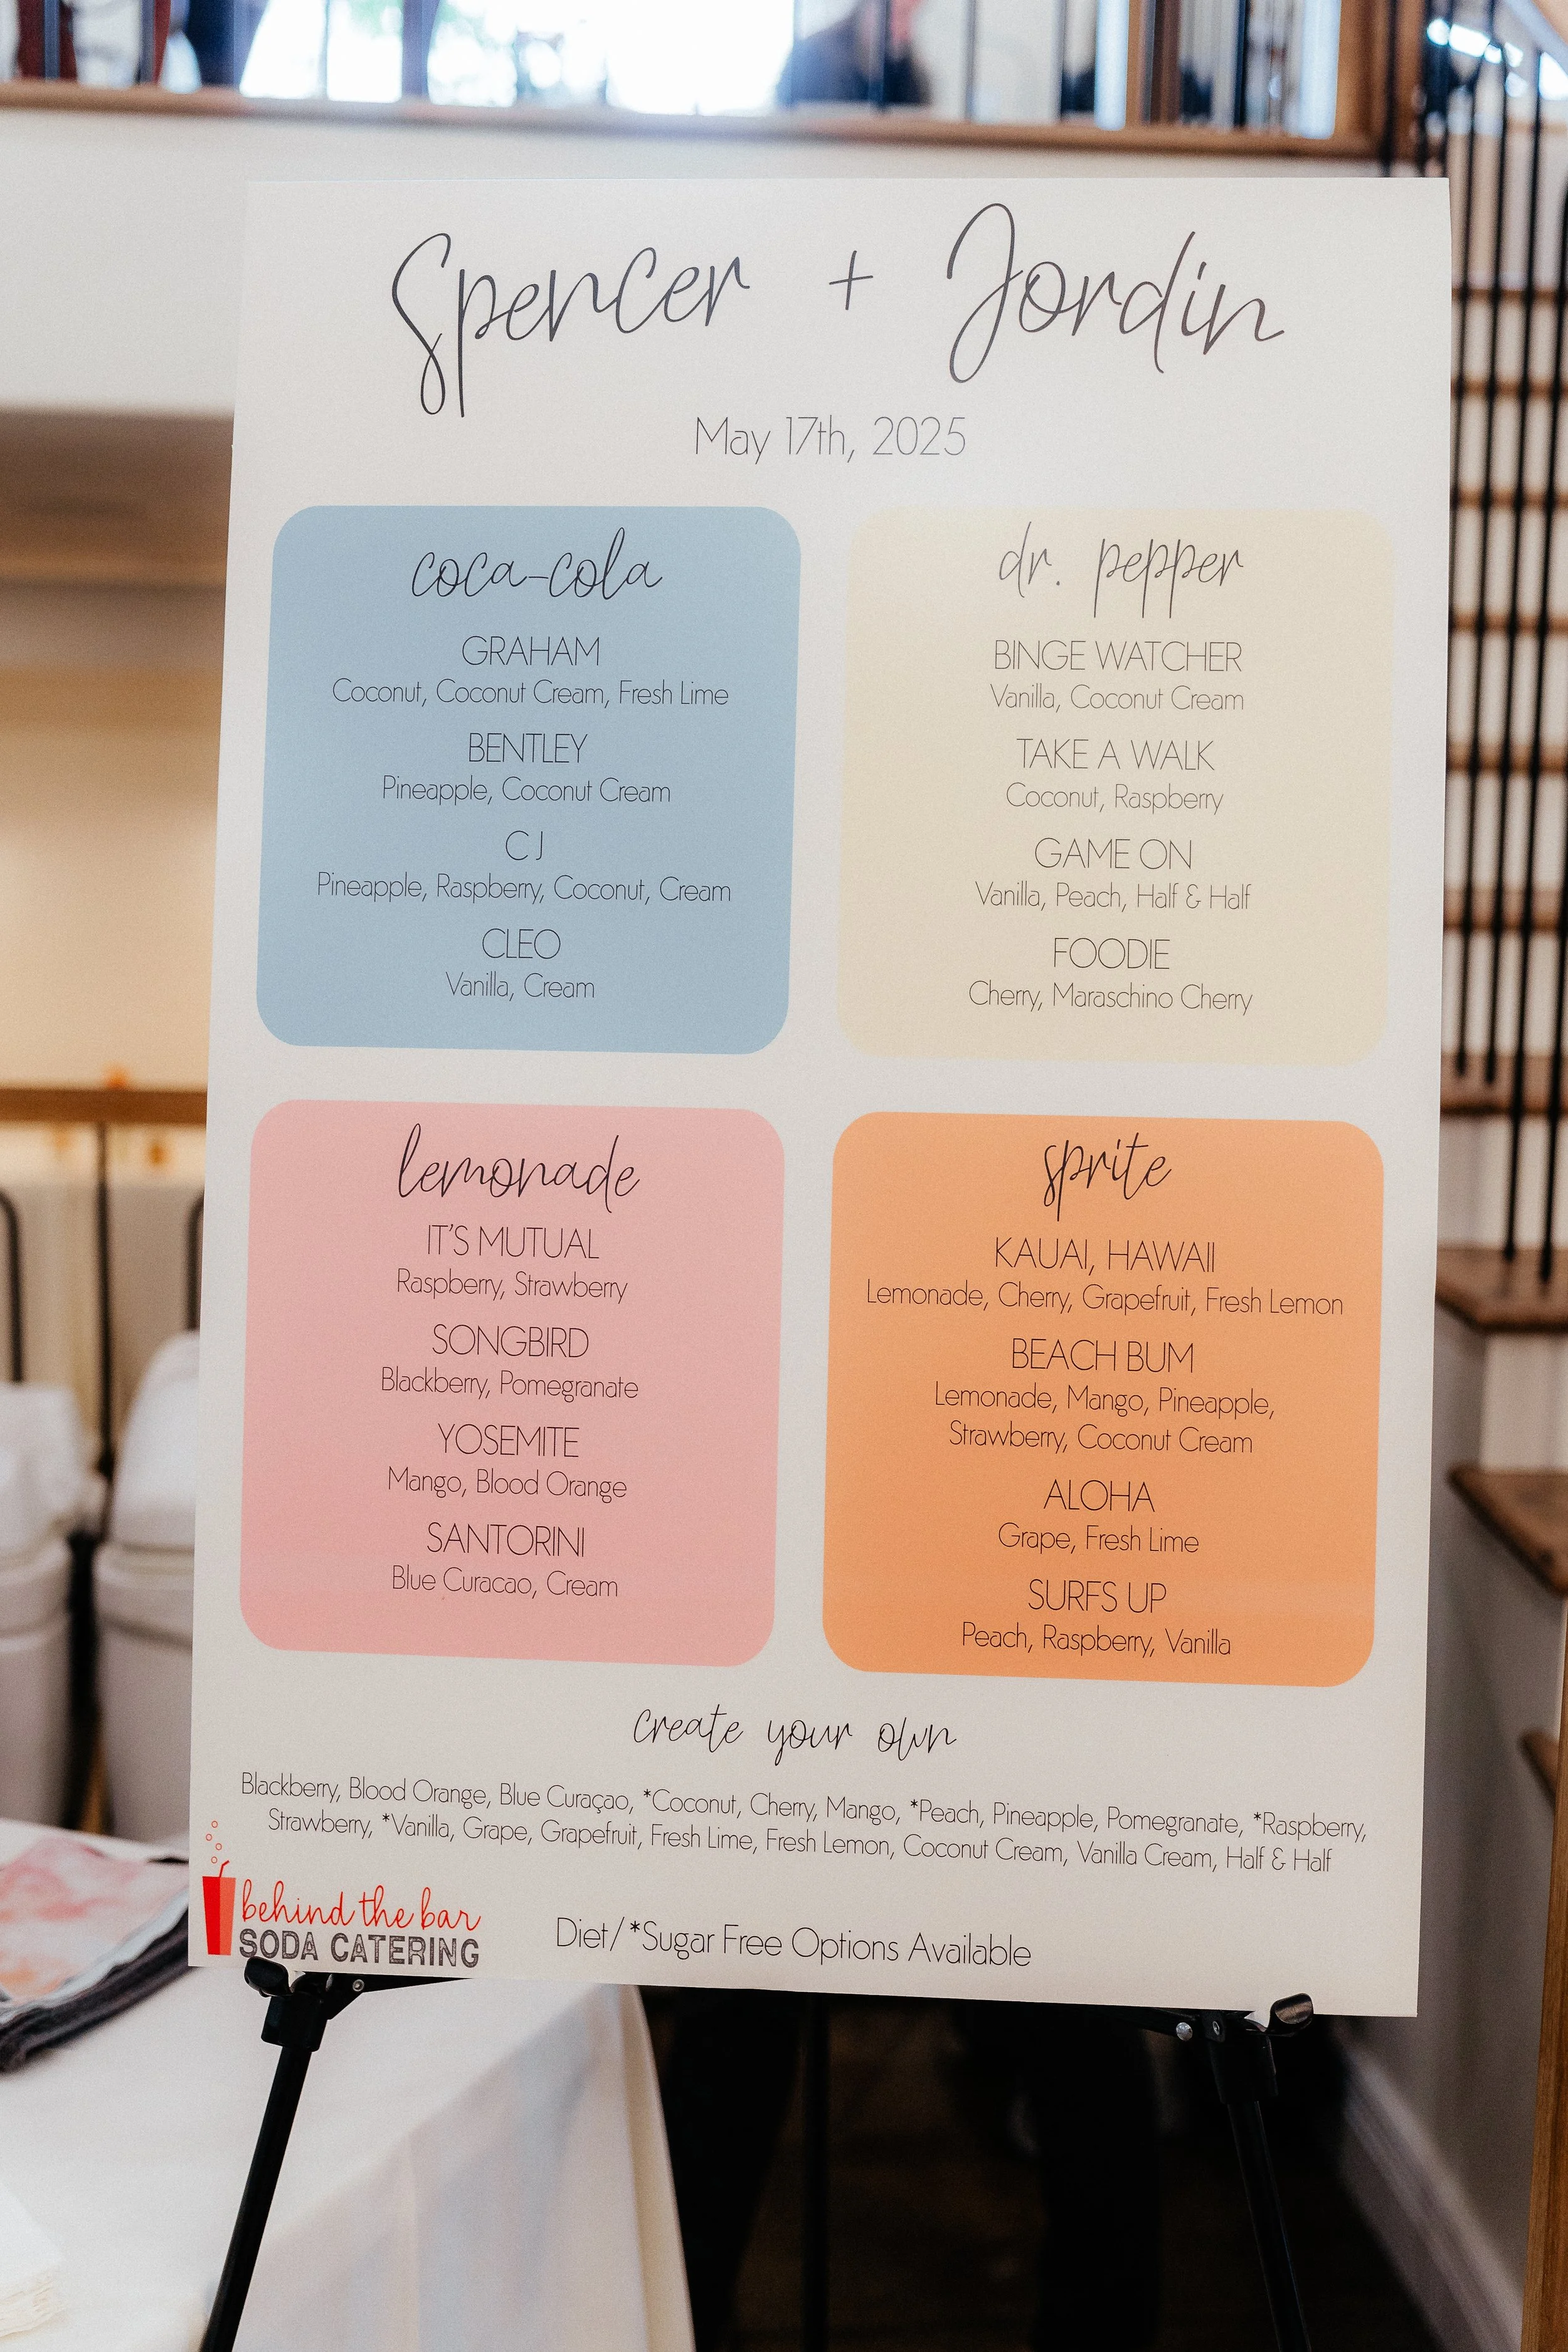 Spencer + Jordin
May 17th, 2025
coca-cola
GRAHAM
Coconut, Coconut Cream, Fresh Lime
BENTLEY
Pineapple, Coconut Cream
CJ
Pineapple, Raspberry, Coconut, Cream
CLEO
Vanilla, Cream
dr. pepper
BINGE WATCHER
Vanilla, Coconut Cream
TAKE A WALK
Coconut, Raspberry
GAME ON
Vanilla, Peach, Half & Half
FOODIE
Cherry, Maraschino Cherry
lemonade
IT'S MUTUAL
Raspberry, Strawberry
SONGBIRD
Blackberry, Pomegranate
YOSEMITE
Mango, Blood Orange
SANTORINI
Blue Curacao, Cream
sprite
KAUAI, HAWAII
Lemonade, Cherry, Grapefruit, Fresh Lemon
BEACH BUM
Lemonade, Mango, Pineapple,
Strawberry, Coconut Cream
ALOHA
Grape, Fresh Lime
SURFS UP
Peach, Raspberry, Vanilla
create your own
Blackberry, Blood Orange, Blue Curaçao, *Coconut, Cherry, Mango, *Peach, Pineapple, Pomegranate, *Raspberry,
Strawberry, *Vanilla, Grape, Grapefruit, Fresh Lime, Fresh Lemon, Coconut Cream, Vanilla Cream, Half & Half
behind the bar
SODA CATERING
Diet/*Sugar Free Options Available